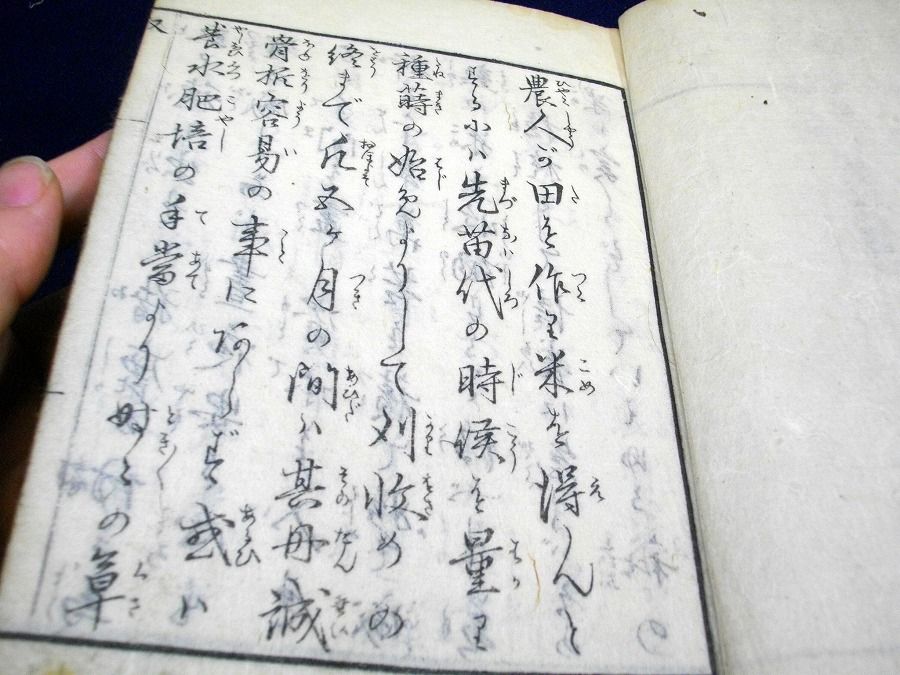 農人が田を作り米を得んと
するにハ先苗代の時候を量り
種蒔の始めよりして刈収めの
終まで凡五ケ月の間ハ其丹誠
骨折容易の事にあらず或ハ
養水肥培の手當より時々の草
又